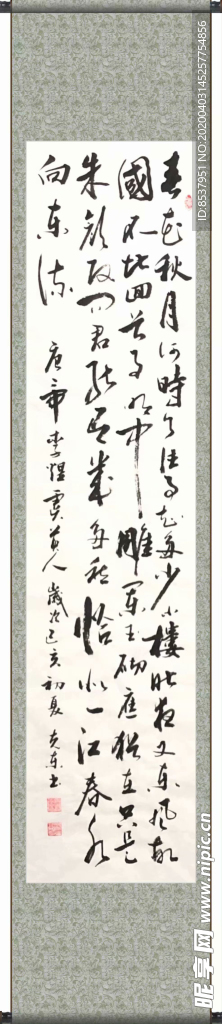 春花秋月何时了往事知多少小楼昨夜又东风故
國不堪回首月明中雕阑玉砌應犹在只是
朱颜改问君能有几多愁恰似一江春水
向东流
唐帝李煜虞美人 歲次己亥初夏 克东书
ID:8537951 NO:20200403145257754856
昵享网 www.nipic.cn